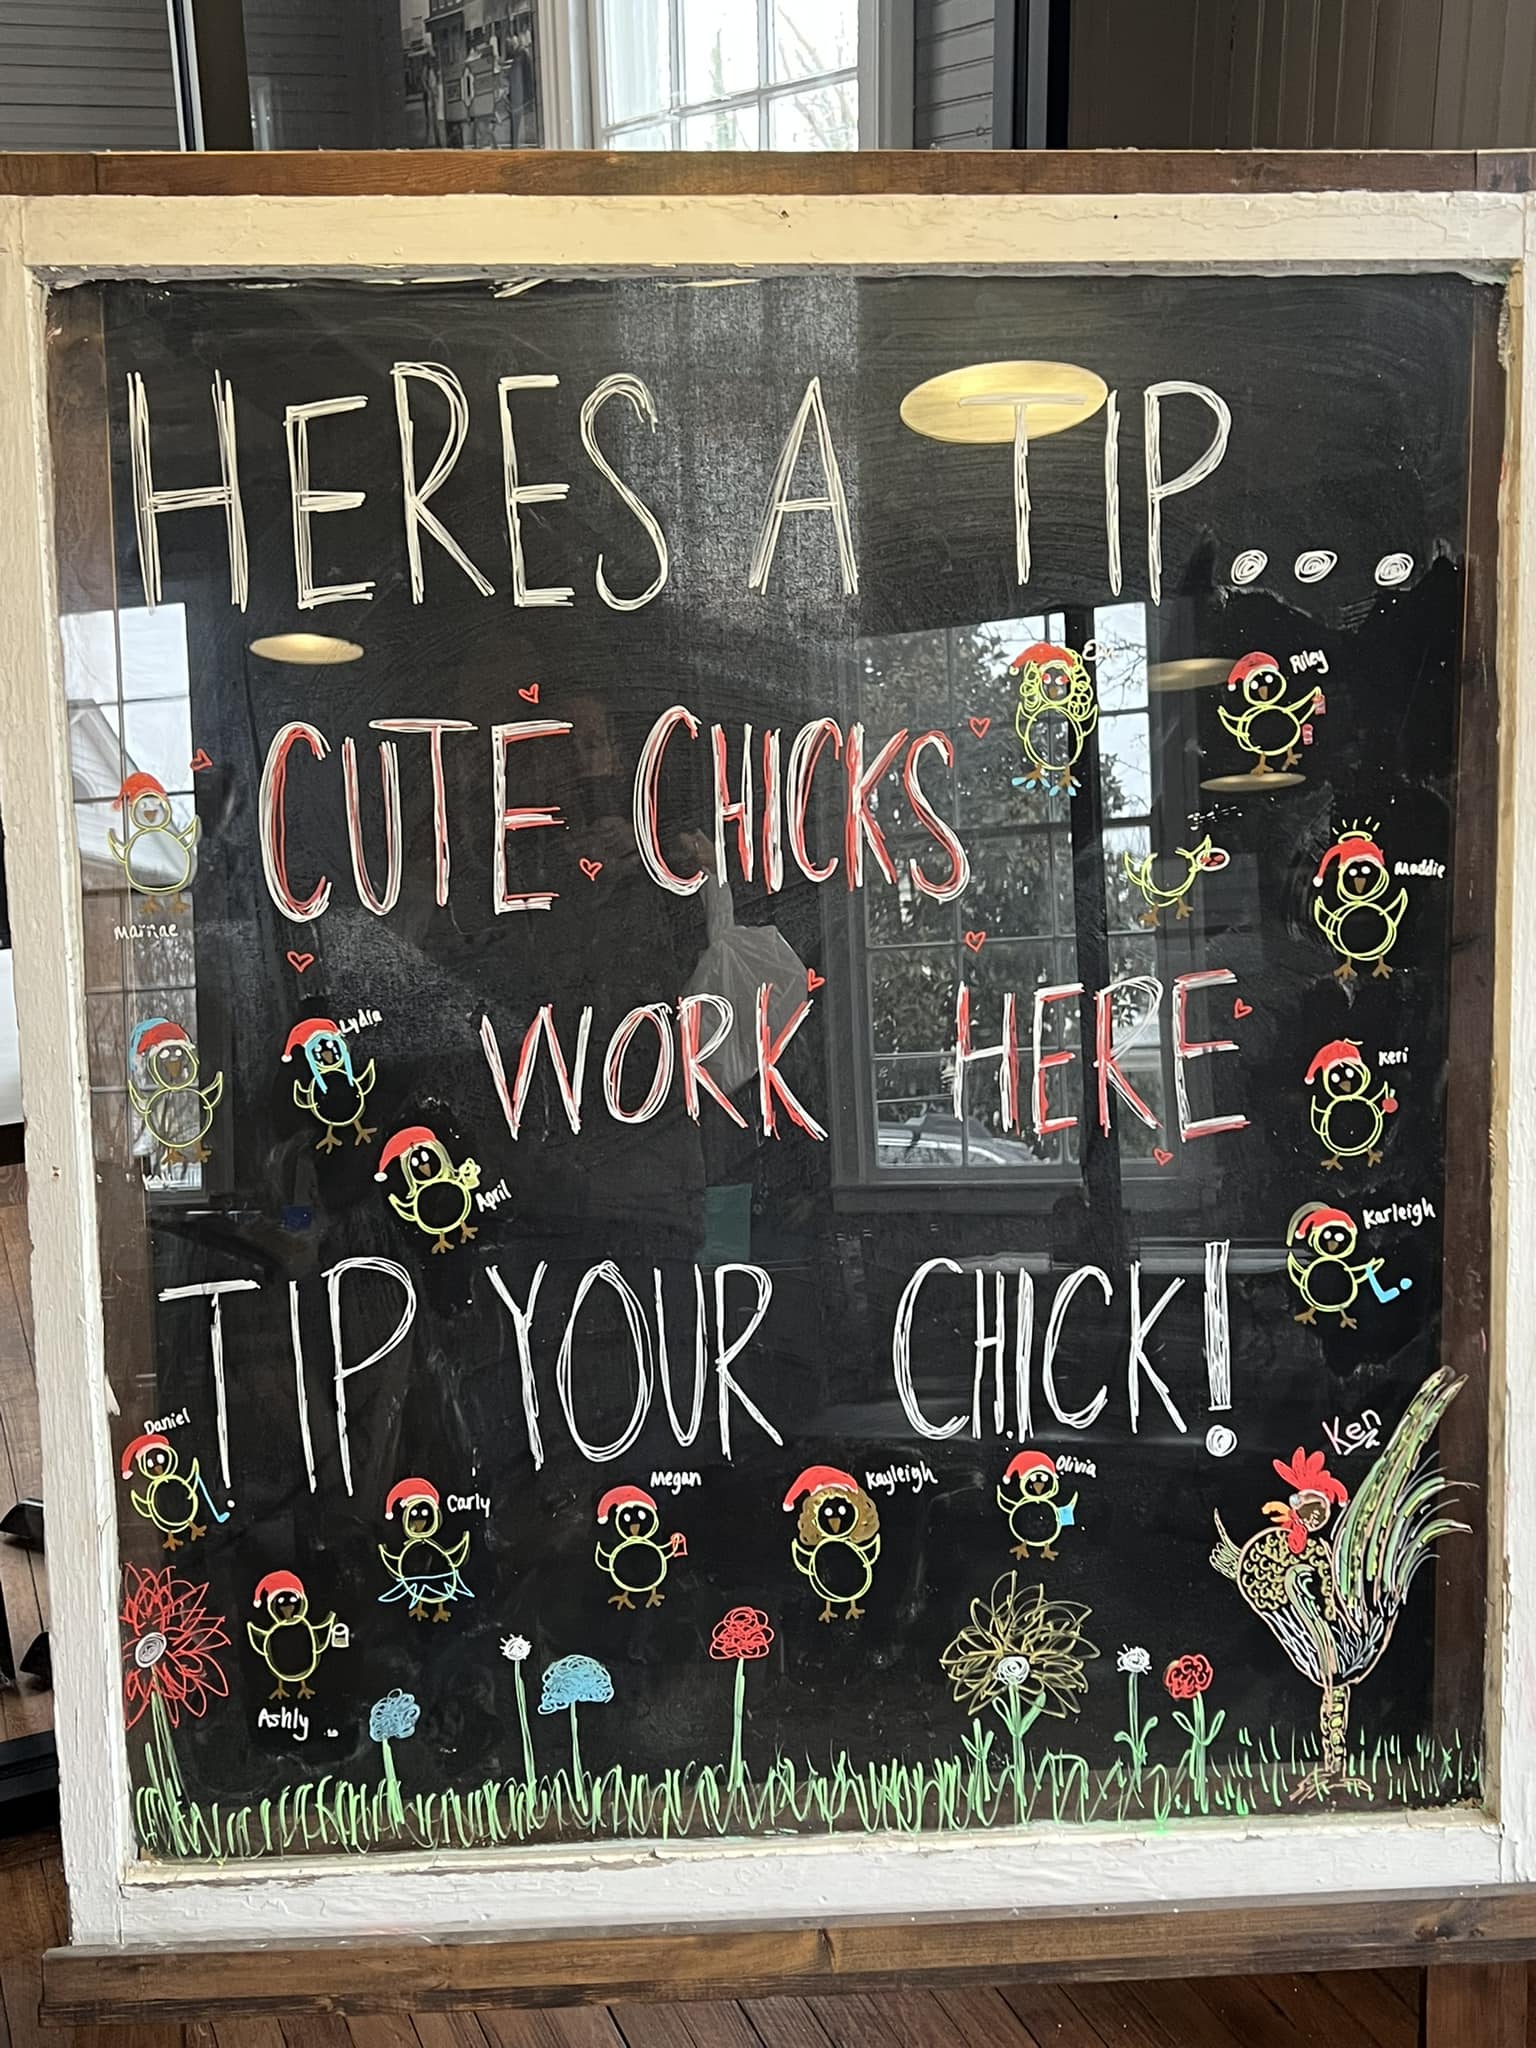 HERES A TIP...
Riley
CUTE CHICKS
Maddie
Marrae
WORK HERE
Lydia
Keri
April
Karleigh
TIP YOUR CHICK!
Daniel
Ken
Carly
Megan
Kayleigh
Olivia
Ashly